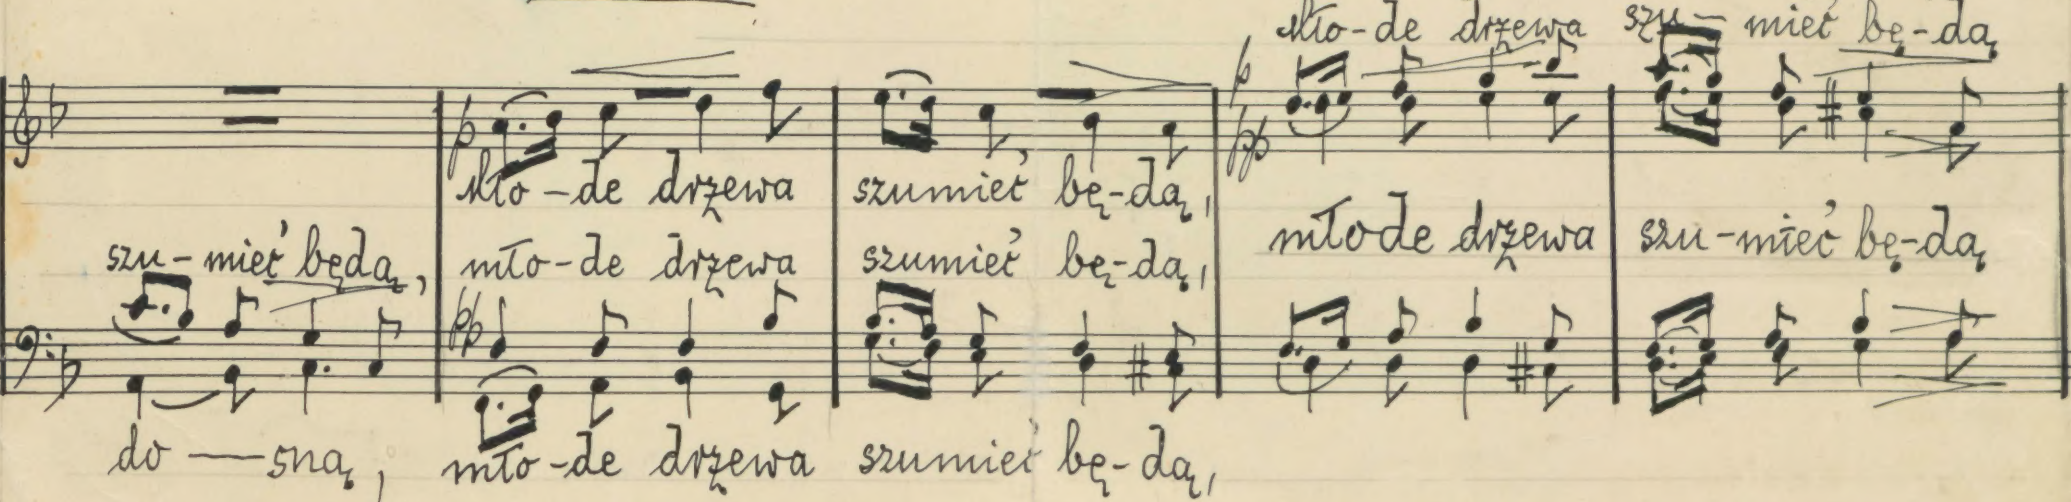 Mło-de drzewa szu-mieć bę-dą
p
p
pp
Mło-de drzewa szumieć bę-dą,
młode drzewa szu-mieć bę-dą
szu-mieć będą, mło-de drzewa szumieć bę-dą,
pp
do-sną, mło-de drzewa szumieć bę-dą,